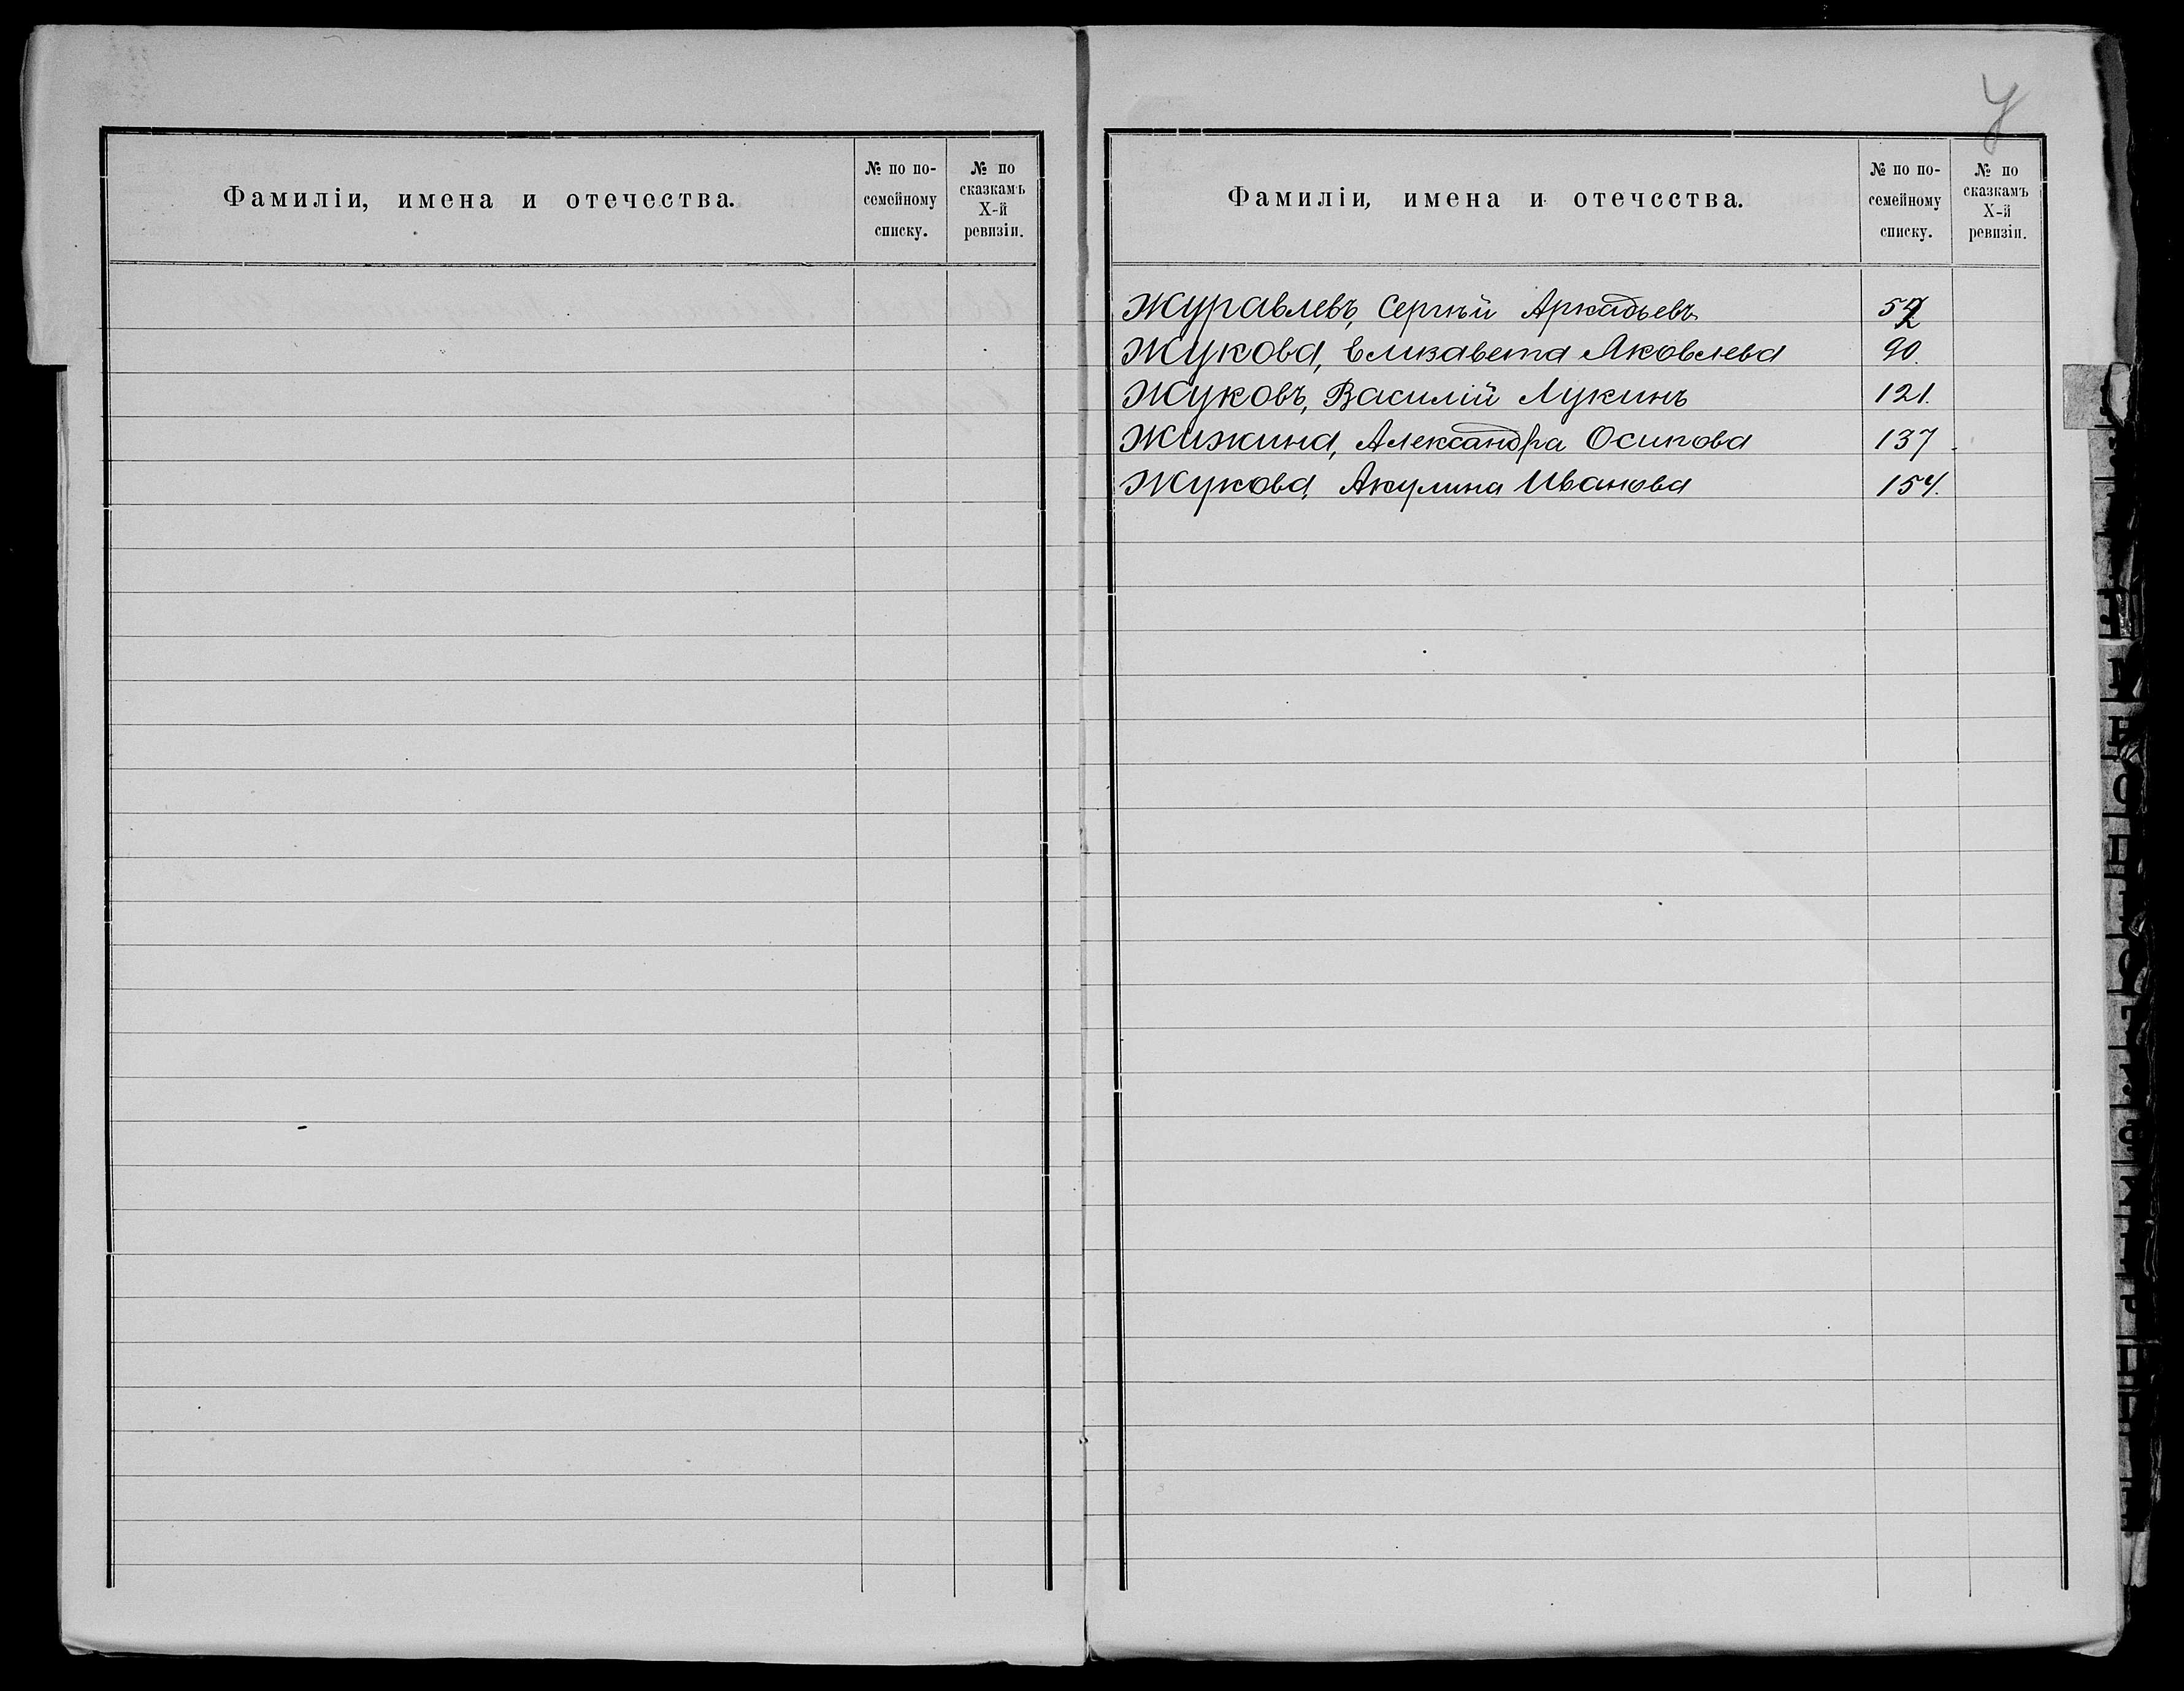 Фамиліи, имена и отечества.
№ по по-
семейному
списку.
№ по
сказкамъ
X-й
ревизіи.
Фамиліи, имена и отечества.
№ по по-
семейному
списку.
№ по
сказкамъ
X-й
ревизіи.
Журавлевъ, Сергѣй Аркадьевъ
Жукова, Елизавета Яковлева 90.
Жуковъ, Василій Лукинъ 121.
Жижина, Александра Осипова 137.
Жукова, Акулина Иванова 154.